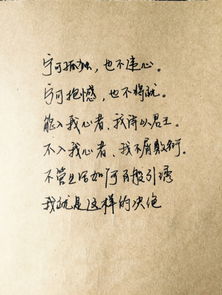 宁可孤独，也不违心。
宁可抱憾，也不将就。
能入我心者、我待以君王。
不入我心者、我不屑敷衍。
不管生活如何百般引诱
我就是这样的决绝